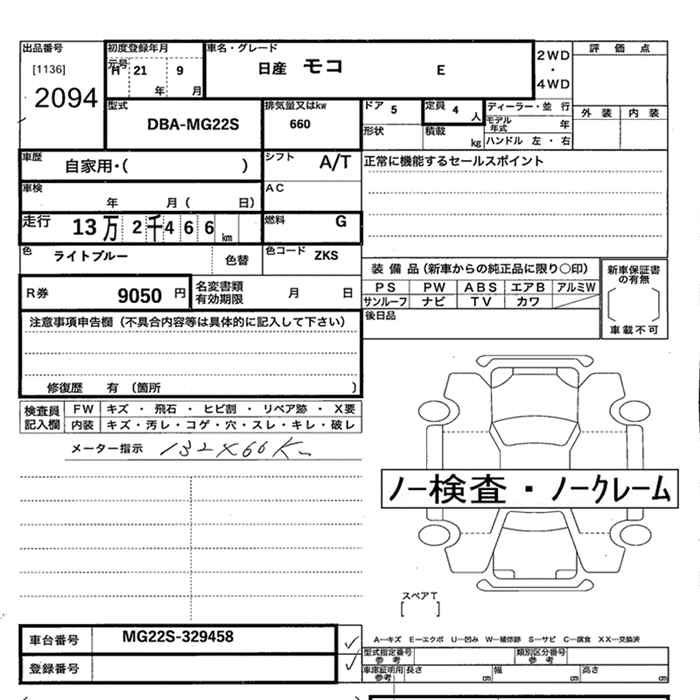 出品番号
[1136]
2094
初度登録年月
元号
H 21 9
年 月
車名・グレード
日産 モコ E
2WD
・
4WD
評 価 点
外 装 内 装
型式
DBA-MG22S
排気量又はkw
660
ドア 5
定員 4 人
形状
積載 kg
ディーラー・並 行
モデル年式 年
ハンドル 左 ・ 右
車歴
自家用・( )
シフト
A/T
正常に機能するセールスポイント
車検
年 月( 日)
AC
走行
13万 2千466 km
燃料
G
色
ライトブルー
色替
色コード ZKS
装 備 品(新車からの純正品に限り○印)
PS PW ABS エアB アルミW
サンルーフ ナビ TV カワ
新車保証書の有無
車載不可
R券
9050 円
名変書類
有効期限
月 日
後日品
注意事項申告欄(不具合内容等は具体的に記入して下さい)
修復歴 有 (箇所 )
検査員
記入欄
FW キズ ・ 飛石 ・ ヒビ割 ・ リペア跡 ・ X要
内装 キズ・汚レ・コゲ・穴・スレ・キレ・破レ
メーター指示 132X66K
ノー検査・ノークレーム
スペアT
[ ]
車台番号
MG22S-329458
登録番号
A―キズ E―エクボ U―凹み W―補修跡 S―サビ C―腐食 XX―交換済
型式指定番号
参 考
類別区分番号
参 考
車庫証明用
参考
長さ cm 幅 cm 高さ cm